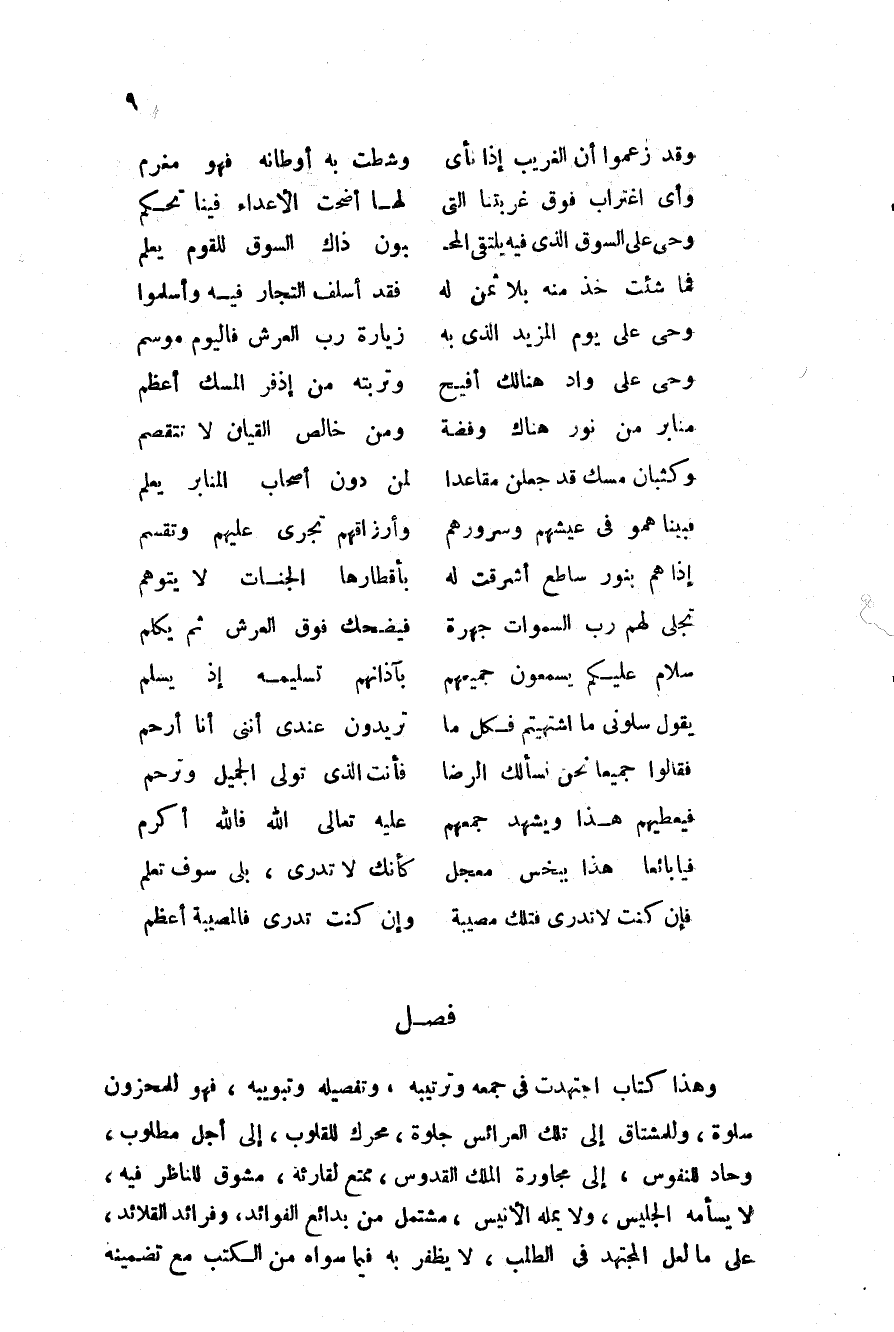 ٩
وقد زعموا أن الغريب إذا نأى وشطت به أوطانه فهو مغرم
وأى اغتراب فوق غربتنا التى لهـا أضحت الأعداء فينا تحـكم
وحى على السوق الذى فيه يلتقى المحـ بون ذاك السوق للقوم يعلم
فما شئت خذ منه بلا ثمن له فقد أسلف التجار فيـه وأسلموا
وحى على يوم المزيد الذى به زيارة رب العرش فاليوم موسم
وحى على واد هنالك أفيـح وتربته من إذفر المسك أعظم
منابر من نور هناك وفضة ومن خالص القيان لا تتقصم
وكثبان مسك قد جعلن مقاعدا لمن دون أصحاب المنابر يعلم
فبينا همو فى عيشهم وسرورهم وأرزاقهم تجرى عليهم وتقسم
إذا هم بنور ساطع أشرقت له بأقطارها الجنـات لا يتوهم
تجلى لهم رب السموات جهرة فيضحك فوق العرش ثم يكلم
سلام عليـكم يسمعون جميعهم بآذانهم تسليمـه إذ يسلم
يقول سلونى ما اشتهيتم فـكل ما تريدون عندى أننى أنا أرحم
فقالوا جميعا نحن نسألك الرضا فأنت الذى تولى الجميل وترحم
فيعطيهم هـذا ويشهد جمعهم عليه تعالى الله فالله أكرم
فيابائعا هذا ببخس معجل كأنك لا تدرى ، بلى سوف تعلم
فإن كنت لاتدرى فتلك مصيبة وإن كنت تدرى فالمصيبة أعظم
فصـل
وهذا كتاب اجتهدت فى جمعه وترتيبه ، وتفصيله وتبويبه ، فهو للمحزون
سلوة ، وللمشتاق إلى تلك العرائس جلوة ، محرك للقلوب ، إلى أجل مطلوب ،
وحاد للنفوس ، إلى مجاورة الملك القدوس ، ممتع لقارئة ، مشوق للناظر فيه ،
لا يسأمه الجليس ، ولا يمله الأنيس ، مشتمل من بدائع الفوائد ، وفرائد القلائد ،
على ما لعل المجتهد فى الطلب ، لا يظفر به فيما سواه من الـكتب مع تضمينه